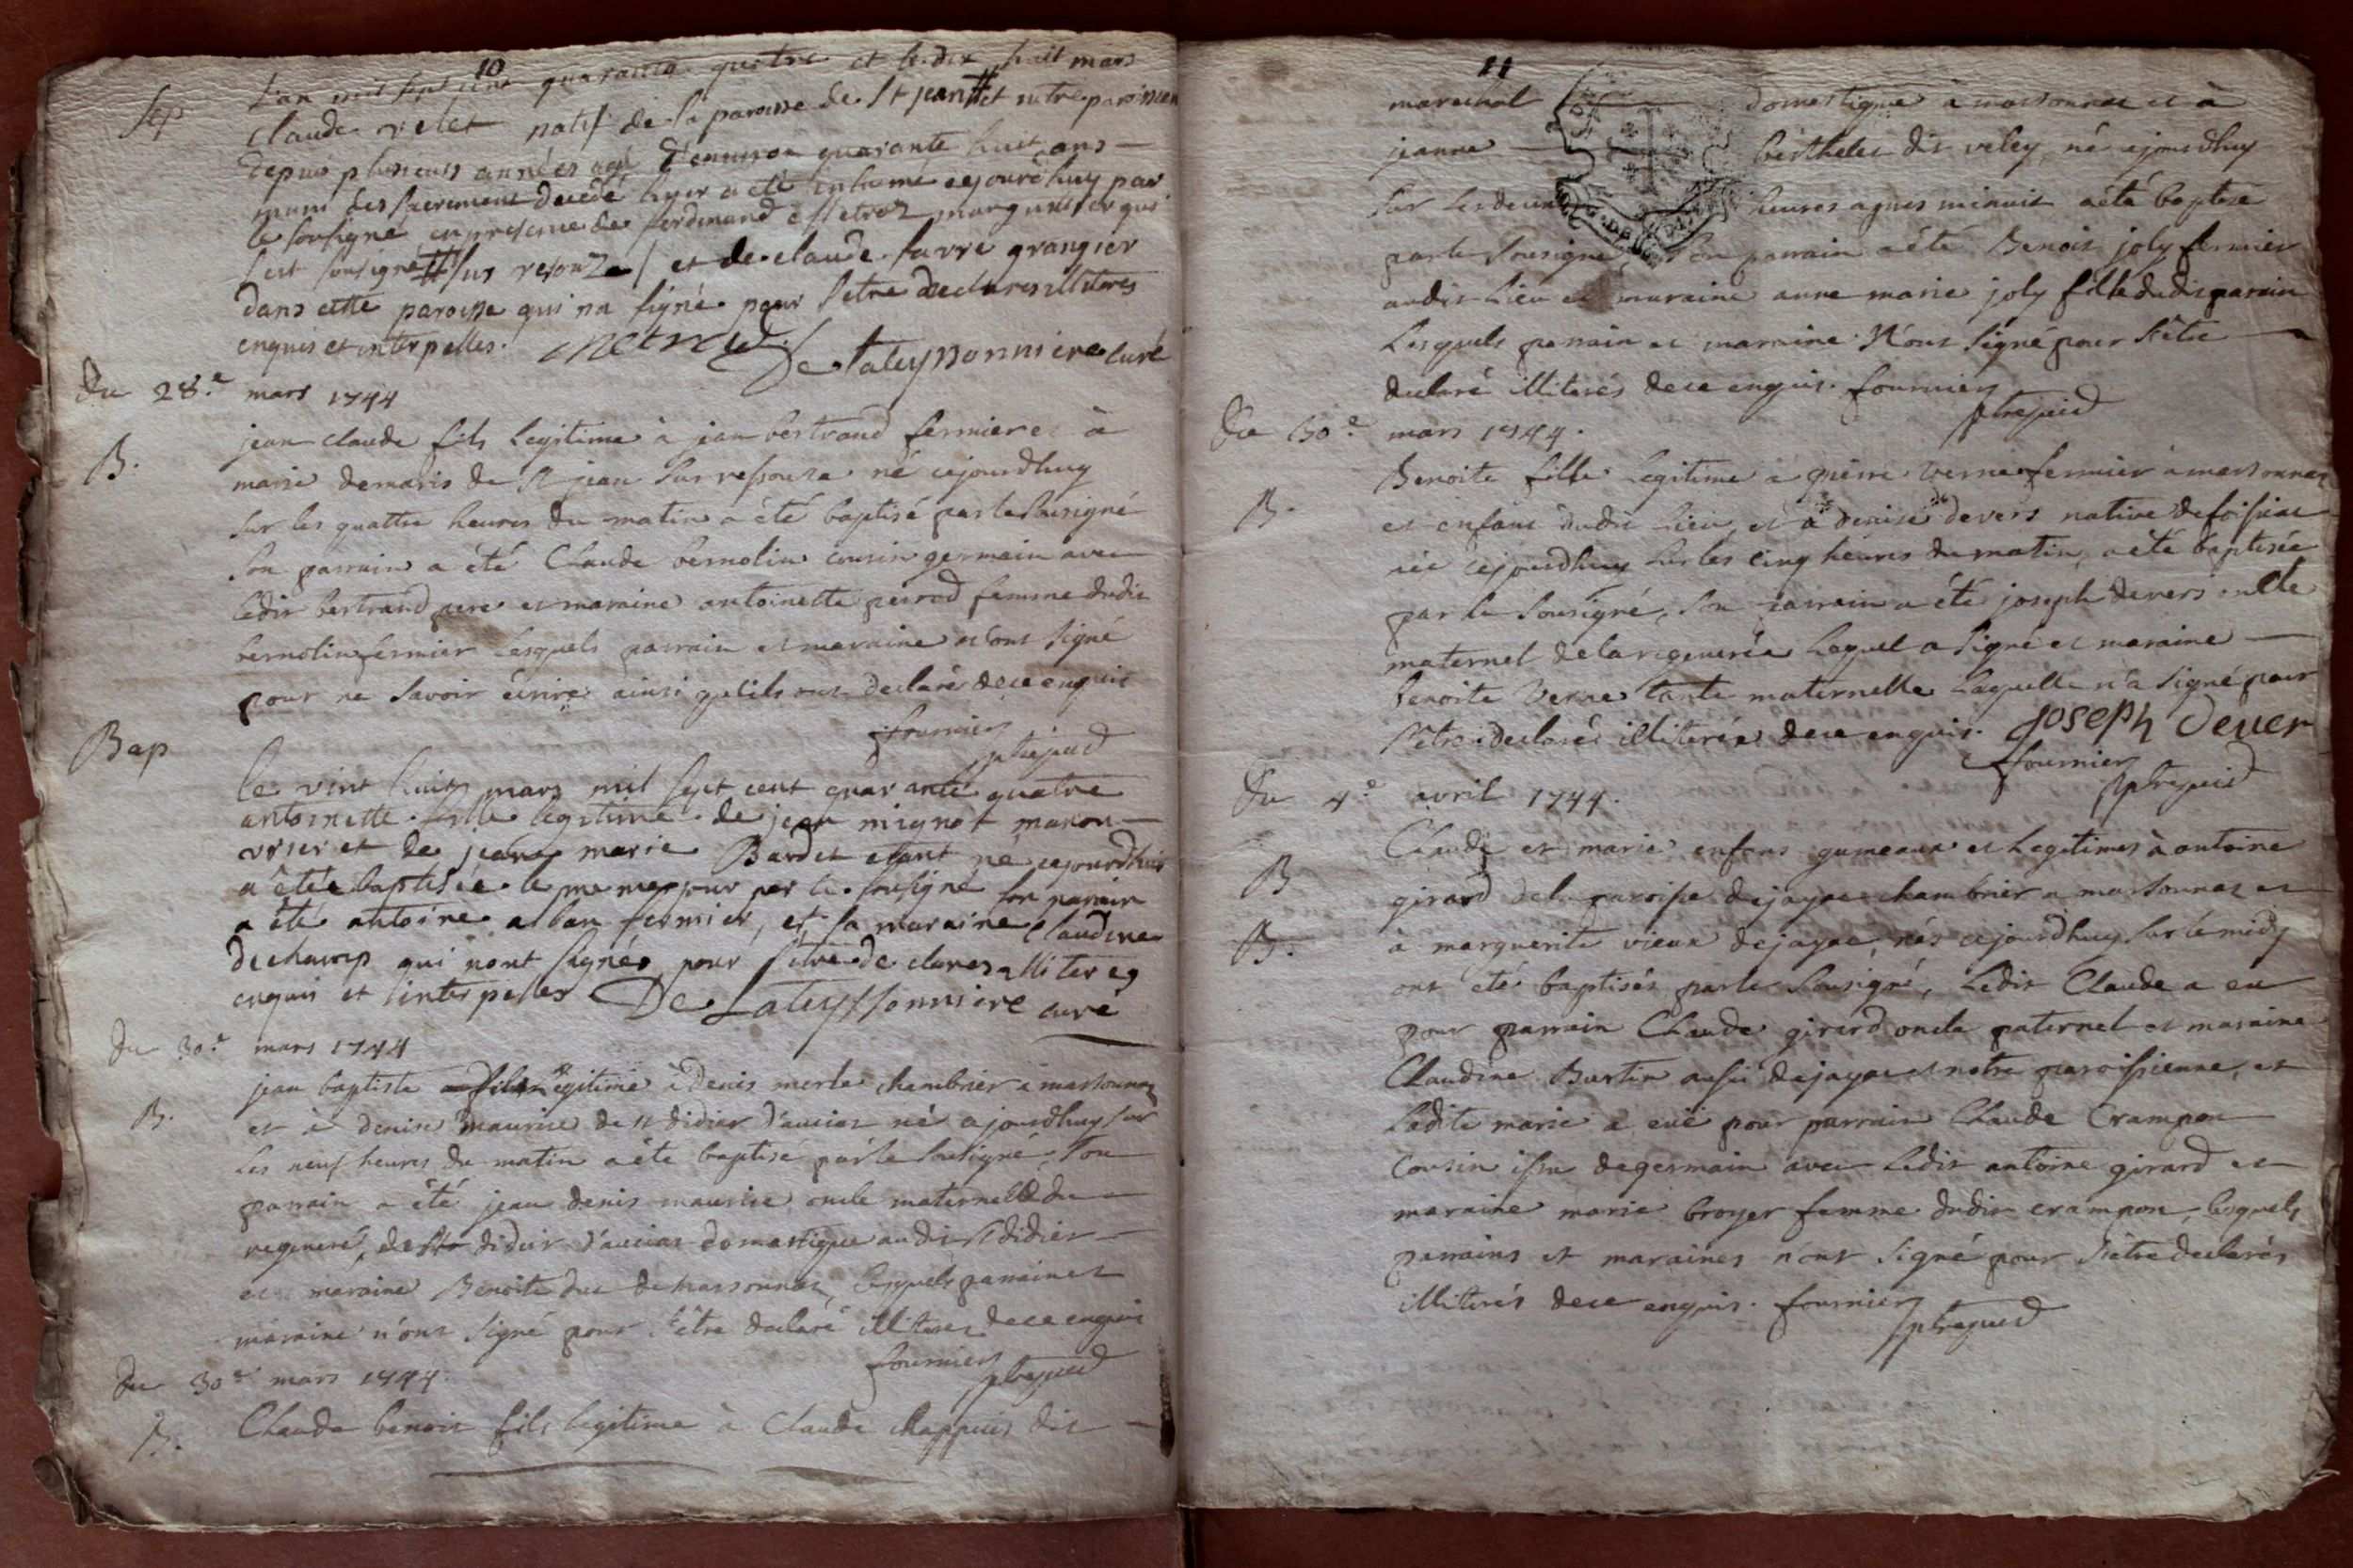 10
Sep
L'an mil sept cent quarante quatre et le dix huit mars
claude velet natif de la paroisse de St jean # et notre paroissien
depuis plusieurs années agé d'environ quarante huit ans
muni des sacremens decedé hyer a eté inhumé cejourdhuy par
le soussigné en presence de ferdinand metroz marguillier qui
s'est soussigné # sur resouze / et de claude favre grangier
dans cette paroisse qui na signé pour setre declares illiteres
enquis et interpelles.
De Lateyssonniere curé
Du 28.e mars 1744
B.
jean claude fils legitime à jean bertrand fermier et à
marie demaris de St jean sur ressouze né cejourdhuy
sur les quattre heures du matin a été baptisé par le sousigné
son parrain a été Claude bernolin cousin germain avec
ledit bertrand pere et maraine antoinette perrod femme dudit
bernolin fermier lesquels parrain et maraine n'ont signé
pour ne savoir écrire ainsi qu'ils ont declaré de ce enquis
fournier
Bap
le vint huit mars mil sept cent quarante quatre
antoinette fille legitime de jean mignot manou-
vrier et de jeane marie Bardet etant né cejourdhui
a étée baptisée le meme jour par le sousigné son parain
a été antoine alban fermier, et sa maraine claudine
dechamp qui nont signés pour s'etre declares illiteres
enquis et interpelles De Lateyssonniere curé
Du 30.e mars 1744
B.
jean baptiste fils legitime à Denis merle chambrier à massonnas
et à denise maurice de st didier d'aussiat né cejourdhuy sur
les neuf heures du matin a été baptisé par le sousigné, son
parrain a été jean denis maurice oncle maternel du
regeneré, de st didier d'aussiat domestique audit st didier
et maraine Benoite duc de massonnas, lesquels parrain et
maraine n'ont signé pour s'être declaré illiteres de ce enquis
fournier
Du 30.e mars 1744.
B.
Claude benoit fils legitime à Claude chappuis dit
11
marechal domestique à massonnas et à
jeanne berthelet dit veley, né cejourdhuy
sur les deux heures apres minuit a été baptisé
par le sousigné, son parrain a été Benoit joly fermier
audit lieu et maraine anne marie joly fille dudit parain
lesquels parrain et maraine N'ont signé pour s'être
declaré illiterés de ce enquis. fournier
Du 30.e mars 1744.
B.
Benoite fille legitime à pierre verne fermier à massonnas
et enfant dudit lieu, et à denise devers native de foissiat
née cejourdhuy sur les cinq heures du matin, a été baptisée
par le sousigné, son parrain a été joseph devers oncle
maternel de la regenerée lequel a signé et maraine
benoite verne tante maternelle laquelle n'a signé pour
s'être declaré illiterée de ce enquis. Joseph Dever
fournier
Du 4.e avril 1744.
B
B.
Claude et marie enfans gumeaux et legitimes à antoine
girard de la paroisse de jayac chambrier a massonnas et
à marguerite vieux de jayac, nés cejourdhuy sur le midy
ont été baptisés par le sousigné, Ledit Claude a eu
pour parrain Claude girard oncle paternel et maraine
Claudine Burtin aussi de jayac et notre paroissienne, et
Ladite marie a euë pour parrain Claude Crampon
Cousin issu de germain avec Ledit antoine girard et
maraine marie broyer femme dudit crampon, lesquels
parrains et maraines n'ont signé pour s'être declarés
illiterés de ce enquis. fournier